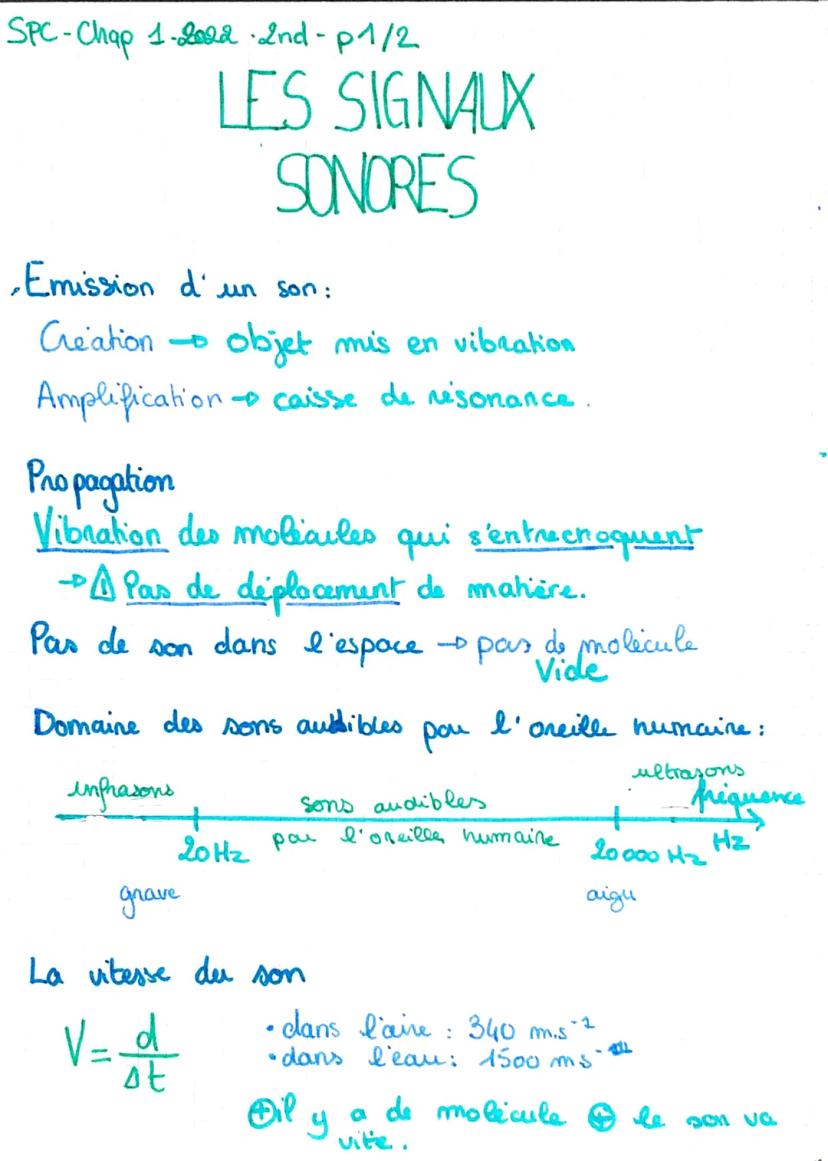 SPC - Chap 1 - 2022 . 2nd - p1/2
LES SIGNAUX
SONORES
Emission d'un son :
Création → objet mis en vibration
Amplification → caisse de résonance .
Propagation
Vibration des molécules qui s'entrechoquent
→ ⚠ Pas de déplacement de matière.
Pas de son dans l'espace → pas de molécule
Vide
Domaine des sons audibles par l'oreille humaine :
infrasons sons audibles ultrasons
fréquence
par l'oreille humaine
20 Hz 20 000 Hz Hz
grave aigu
La vitesse du son
V = d/Δt
• dans l'aire : 340 m.s⁻¹
• dans l'eau : 1500 ms⁻
⊕ il y a de molécule ⊕ le son va
vite .